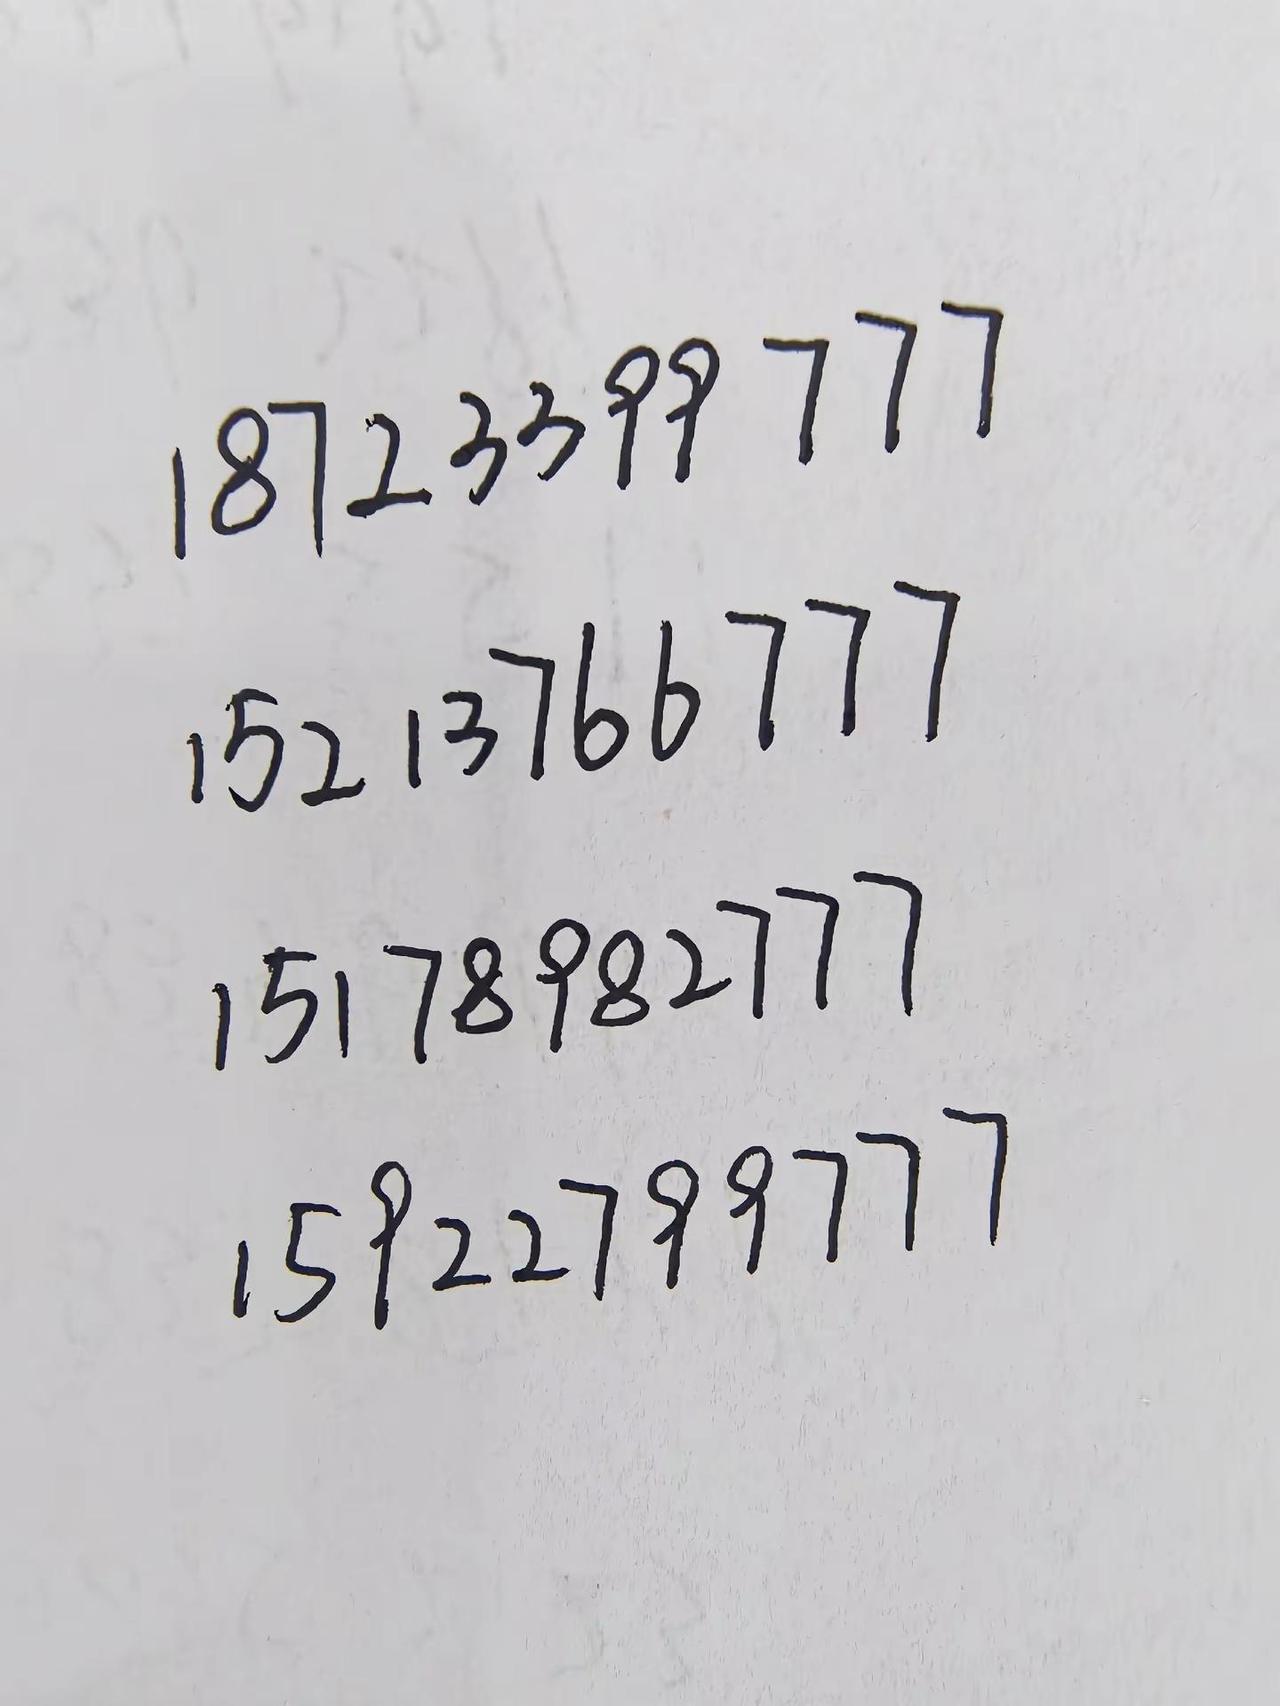 18723399777
15213766777
15178982777
15922799777